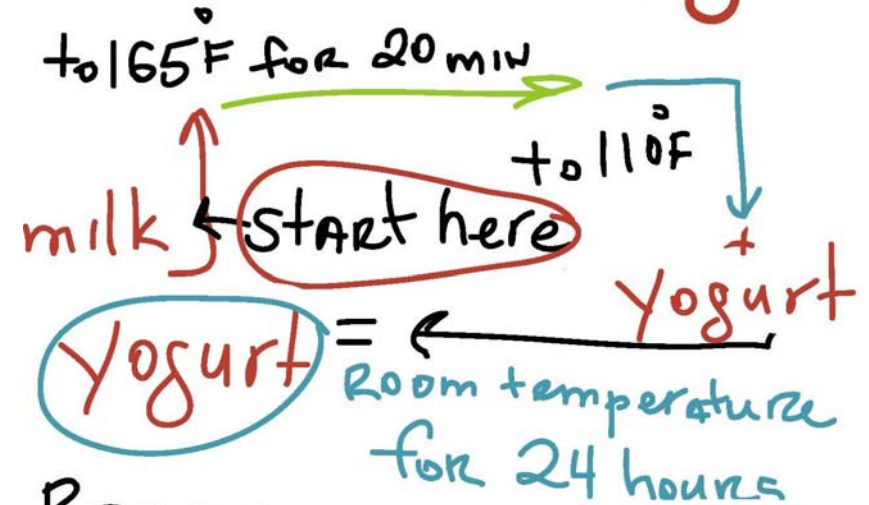 to 165°F for 20 min
to 110°F
milk
START here
+
yogurt
yogurt =
Room temperature
for 24 hours